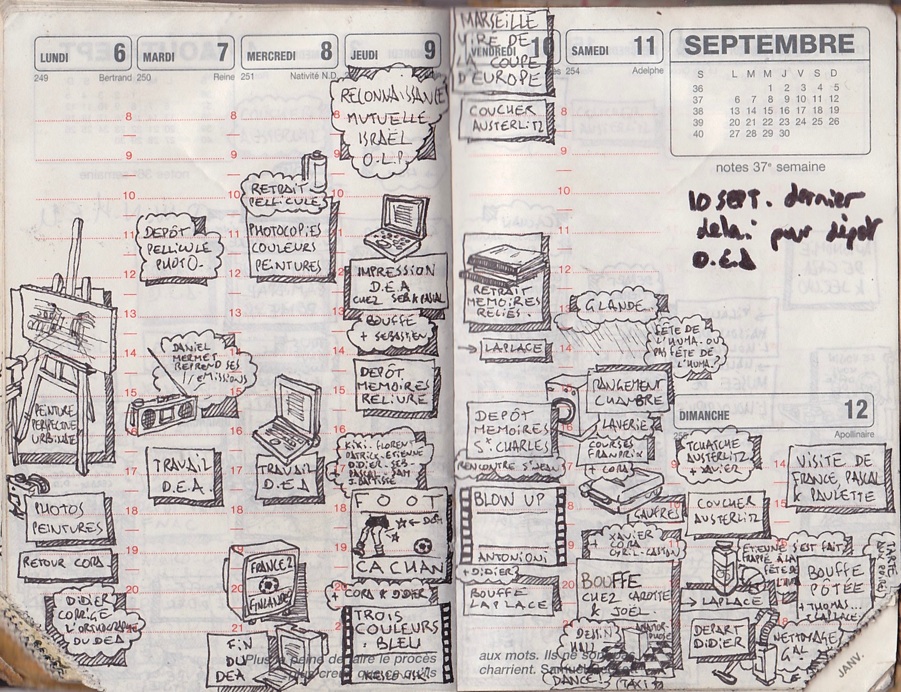 LUNDI 6
249 Bertrand
PEINTURE
PERSPECTIVE
URBAINE
PHOTOS
PEINTURES
RETOUR CORA
DIDIER
CORRIGE
L'ORTHOGRAPHE
DU DEA
MARDI 7
250 Reine
DEPÔT
PELLICULE
PHOTO.
DANIEL
MERMET
REPREND SES
EMISSIONS
TRAVAIL
D.E.A.
FRANCE 2
FINLANDE
FIN
DU
DEA
MERCREDI 8
251 Nativité N.D.
RETRAIT
PELLICULE
PHOTOCOPIES
COULEURS
PEINTURES
TRAVAIL
D.E.A
JEUDI 9
RECONNAISSANCE
MUTUELLE
ISRAËL
O.L.P.
IMPRESSION
D.E.A
CHEZ SEB & PASCAL
BOUFFE
+ SEBASTIEN
DEPÔT
MEMOIRES
RELIURE
KIKI. FLORENT
PATRICK. ETIENNE
DIDIER. SEB
PASCAL. SAM
FOOT
CACHAN
+ CORA & DIDIER
TROIS
COULEURS
: BLEU
Plus
peine de faire le procès
8
9
10
11
12
13
14
15
16
17
18
19
20
21
MARSEILLE
VIRE DE
LA COUPE
D'EUROPE
VENDREDI 10
COUCHER
AUSTERLITZ
RETRAIT
MEMOIRES
RELIÉS.
→ LAPLACE
DEPÔT
MEMOIRES
St CHARLES
RENCONTRE S'JEAN
BLOW UP
ANTONIONI
+ DIDIER
BOUFFE
LAPLACE
aux mots. Ils ne sont pas
charrient.
SAMEDI 11
254 Adelphe
GLANDE...
FÊTE DE
L'HUMA. OU
PAS FÊTE DE
L'HUMA.
RANGEMENT
CHAMBRE
LAVERIE
COURSES
FRANPRIX
(+ CORA)
GAUFRES
+ XAVIER
CORA
CYRIL
BOUFFE
CHEZ CAROTTE
& JOËL.
DESSIN
DANCE
(TAXI)
SEPTEMBRE
S L M M J V S D
36 1 2 3 4 5
37 6 7 8 9 10 11 12
38 13 14 15 16 17 18 19
39 20 21 22 23 24 25 26
40 27 28 29 30
notes 37e semaine
10 SEPT. dernier
delai pour dépôt
D.E.A
DIMANCHE 12
Apollinaire
TCHATCHE
AUSTERLITZ
+ XAVIER
COUCHER
AUSTERLITZ
→ LAPLACE
DEPART
DIDIER
VISITE DE
FRANCE, PASCAL
& PAULETTE
ETIENNE S'EST FAIT
FRAPPÉ À LA
FÊTE DE
BOUFFE
POTÉE
+ THOMAS...
NETTOYAGE
GAL
JANV.